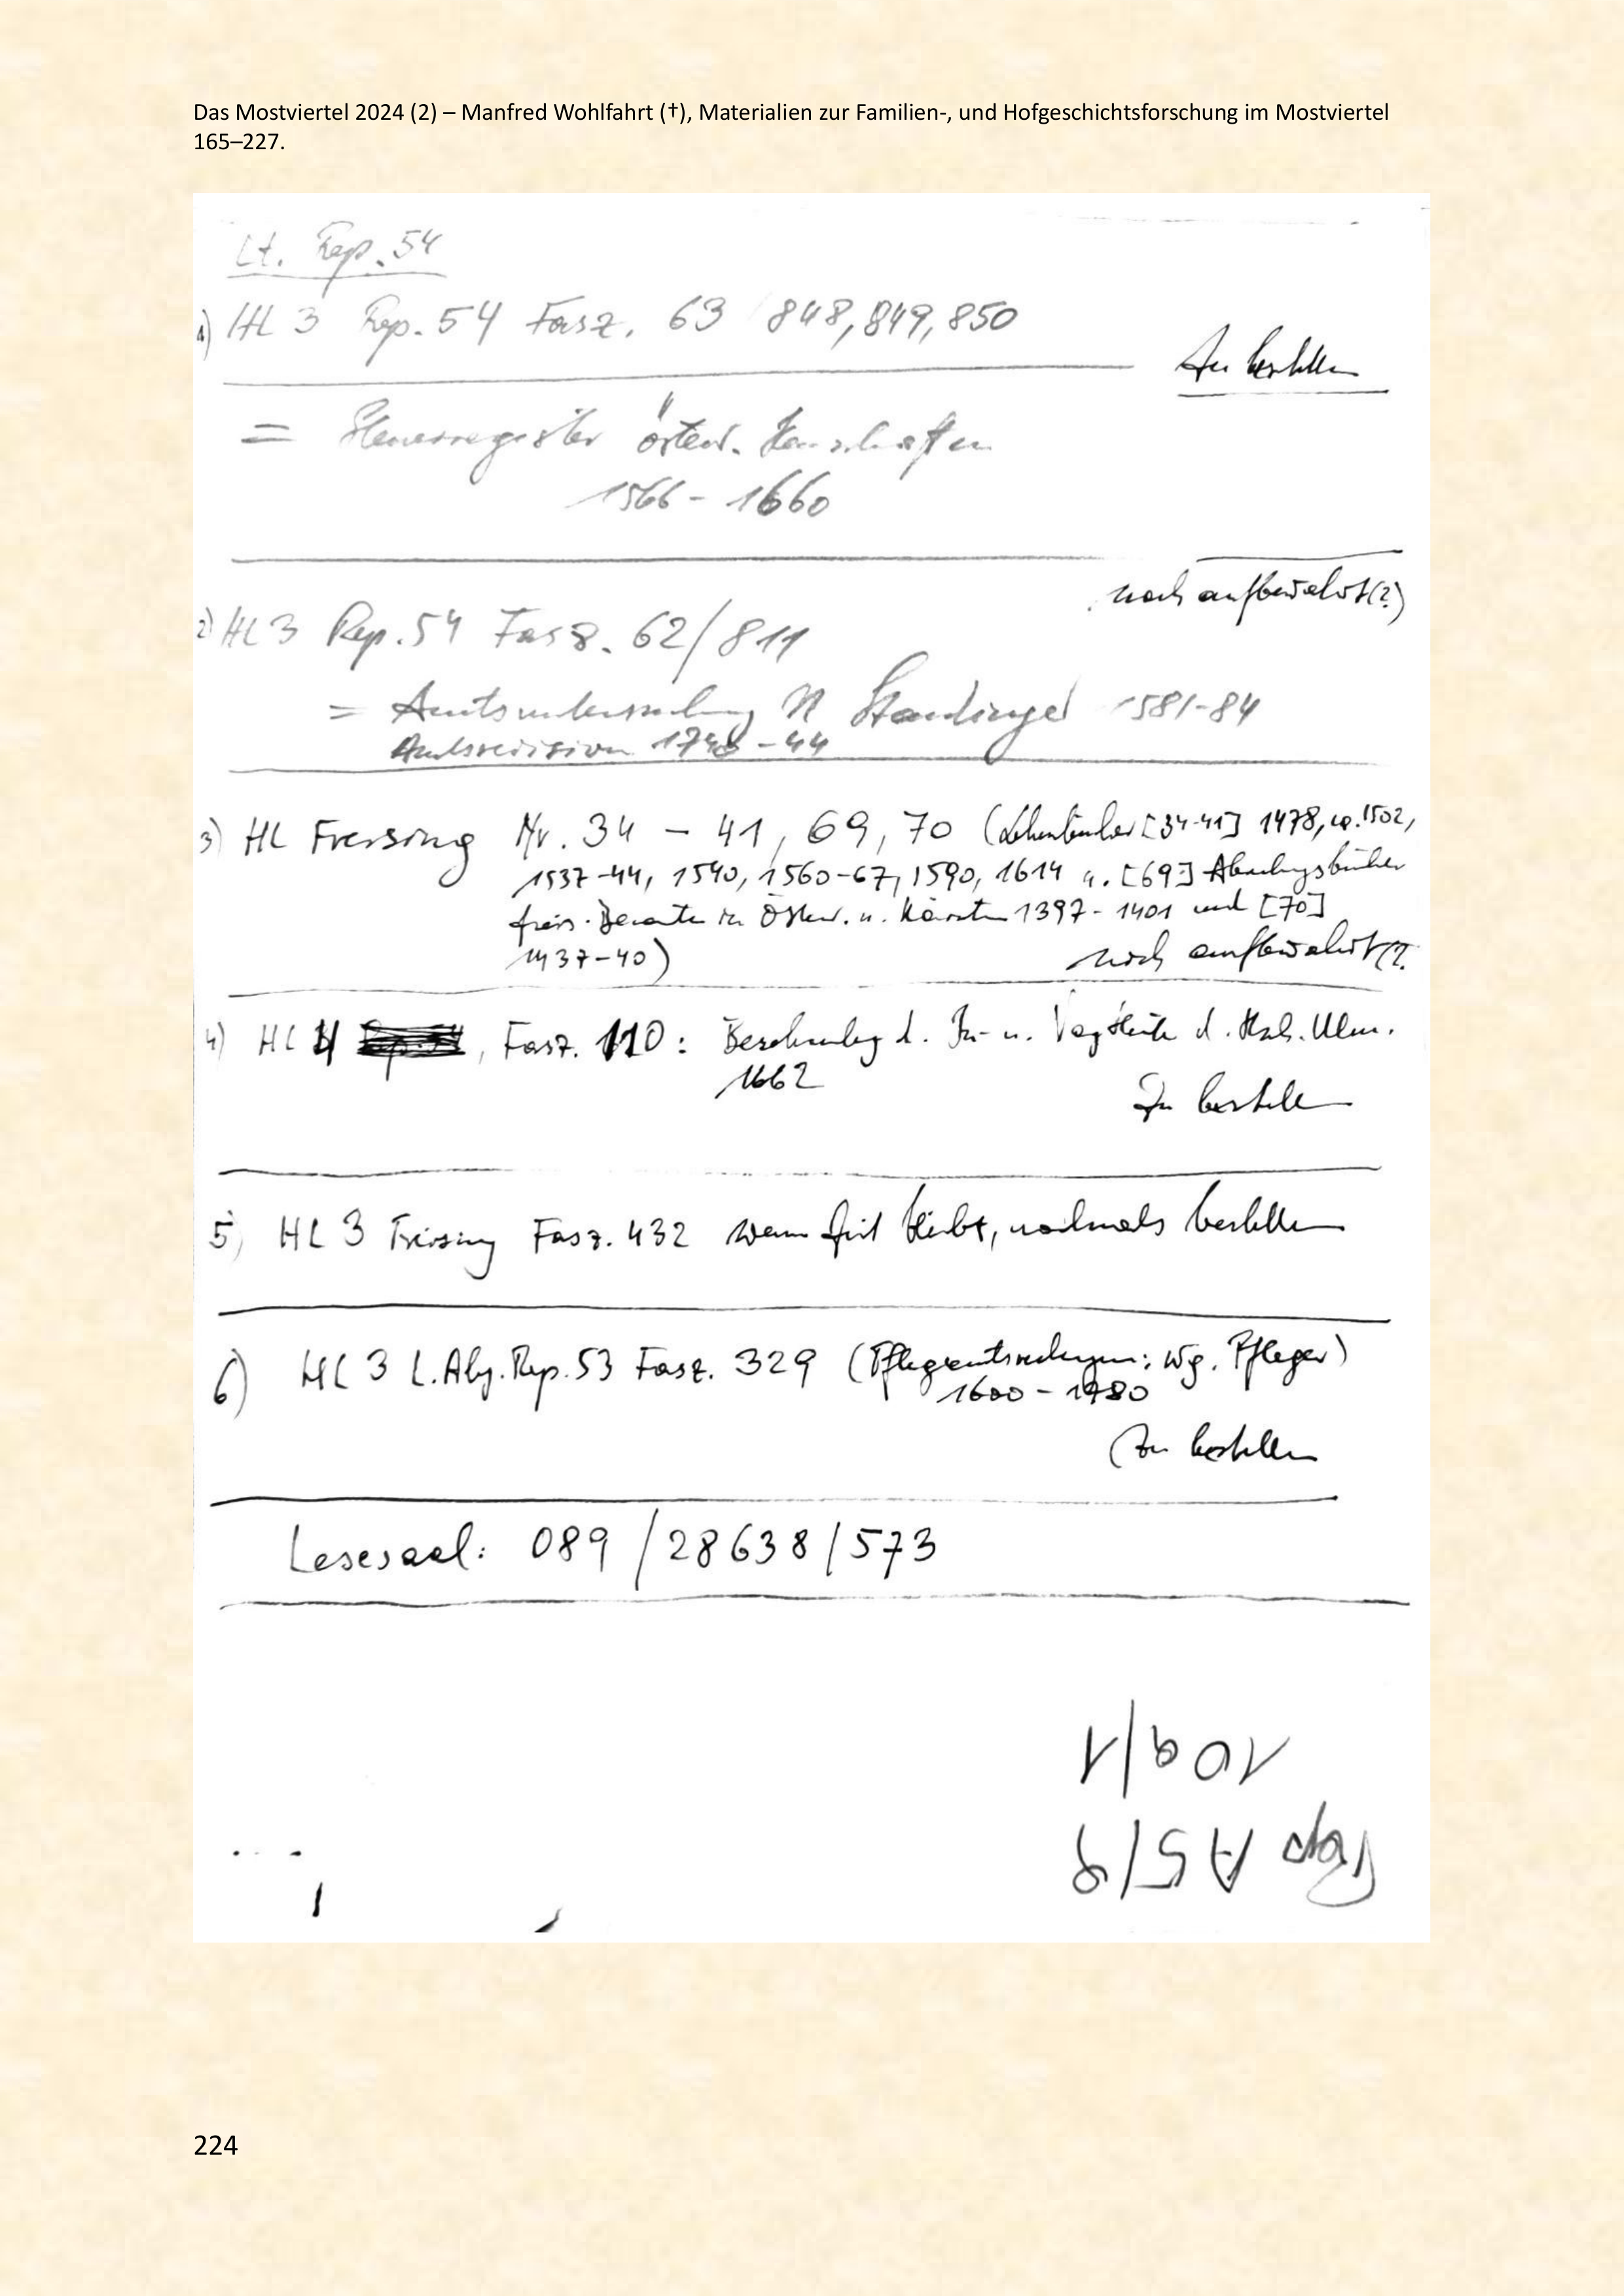 Das Mostviertel 2024 (2) – Manfred Wohlfahrt (†), Materialien zur Familien-, und Hofgeschichtsforschung im Mostviertel
165–227.
Lt. Rep. 54
1) HL 3 Rep. 54 Fasz. 63 / 848, 849, 850
Zu bestellen
= Steuerregister österr. Herrschaften
1566 - 1660
noch aufbewahrt (?)
2) HL 3 Rep. 54 Fasz. 62/811
= Amtsuntersuchung Standinger 1581-84
Amtsrevision - 44
3) HL Freising Nr. 34 - 41, 69, 70 (Lehenbücher [34-41] 1478, 1502,
1537-44, 1540, 1560-67, 1590, 1614 u. [69] Abrechnungsbücher
freis. Beamte in Österr. u. Kärnten 1397 - 1401 und [70]
1437-40)
noch aufbewahrt (?
4) HL 4 , Fasz. 110: Beschreibung d. u. d. Ulm.
1662
Zu bestellen
5) HL 3 Freising Fasz. 432 wenn Zeit bleibt, nochmals bestellen
6) HL 3 Rep. 53 Fasz. 329 (Pflegeramtsrechnungen; wg. Pfleger)
1600 -
(Zu bestellen
Lesesaal: 089 / 28638 / 573
Rep A5/9
10a/1
224